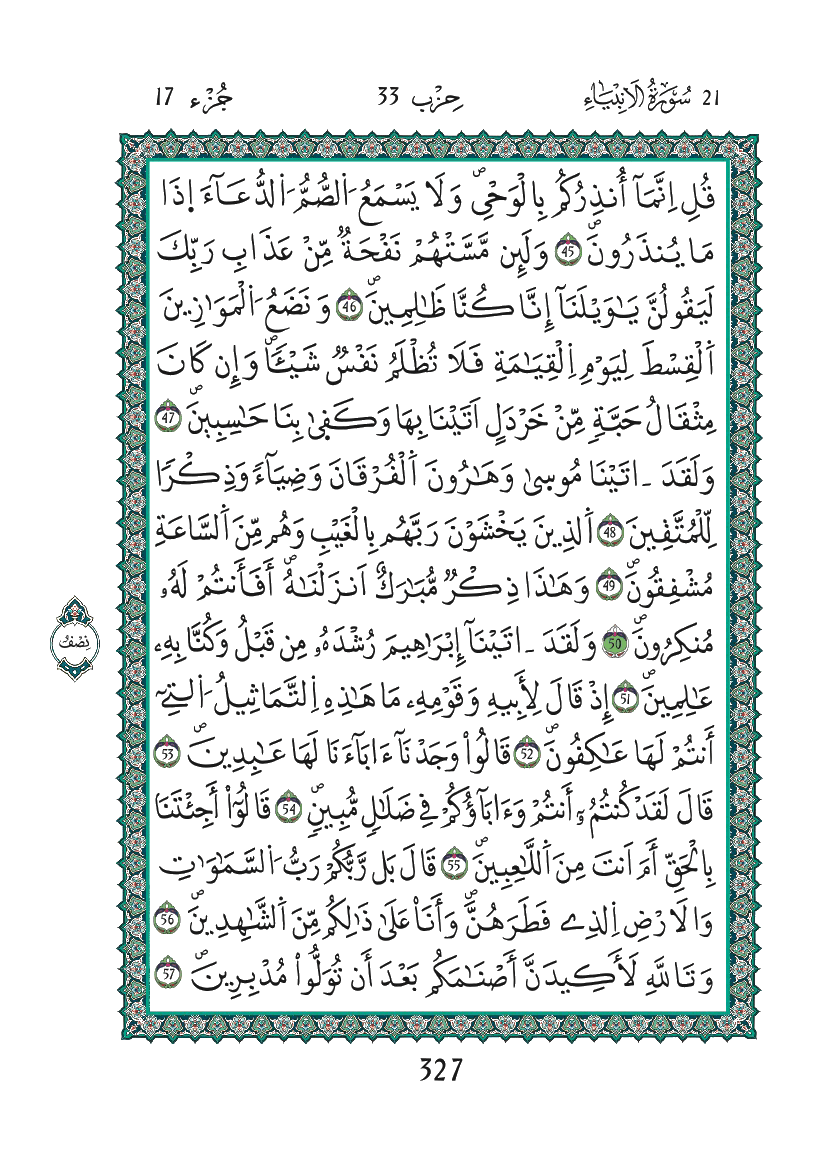 21 سُورَةُ الْأَنْبِيَاءِ حِزْب 33 جُزْء 17
قُلِ اِنَّمَآ أُنذِرُكُم بِالْوَحْيِۖ وَلَا يَسْمَعُ اُ۬لصُّمُّ اُ۬لدُّعَآءَ اِذَا
مَا يُنذَرُونَۖ 45 وَلَئِن مَّسَّتْهُمْ نَفْحَةٞ مِّنْ عَذَابِ رَبِّكَ
لَيَقُولُنَّ يَٰوَيْلَنَآ إِنَّا كُنَّا ظَٰلِمِينَۖ 46 وَنَضَعُ اُ۬لْمَوَٰزِينَ
اَ۬لْقِسْطَ لِيَوْمِ اِ۬لْقِيَٰمَةِ فَلَا تُظْلَمُ نَفْسٞ شَيْـٔاٗۖ وَإِن كَانَ
مِثْقَالُ حَبَّةٖ مِّنْ خَرْدَلٍ اَتَيْنَا بِهَا وَكَفٰى بِنَا حَٰسِبِينَۖ 47
وَلَقَدَ اٰتَيْنَا مُوسىٰ وَهَٰرُونَ اَ۬لْفُرْقَانَ وَضِيَآءٗ وَذِكْراٗ
لِّلْمُتَّقِينَ 48 اَ۬لذِينَ يَخْشَوْنَ رَبَّهُم بِالْغَيْبِ وَهُم مِّنَ اَ۬لسَّاعَةِ
مُشْفِقُونَۖ 49 وَهَٰذَا ذِكْرٞ مُّبَٰرَكٌ اَنزَلْنَٰهُۖ أَفَأَنتُمْ لَهُۥ
مُنكِرُونَۖ 50 وَلَقَدَ اٰتَيْنَآ إِبْرَٰهِيمَ رُشْدَهُۥ مِن قَبْلُ وَكُنَّا بِهِۦ
نِصْفُ
عَٰلِمِينَۖ 51 إِذْ قَالَ لِأَبِيهِ وَقَوْمِهِۦ مَا هَٰذِهِ اِ۬لتَّمَاثِيلُ اُ۬لتِےٓ
أَنتُمْ لَهَا عَٰكِفُونَۖ 52 قَالُواْ وَجَدْنَآ ءَابَآءَنَا لَهَا عَٰبِدِينَۖ 53
قَالَ لَقَدْ كُنتُمُۥٓ أَنتُمْ وَءَابَآؤُكُمْ فِے ضَلَٰلٖ مُّبِينٖۖ 54 قَالُوٓاْ أَجِئْتَنَا
بِالْحَقِّ أَمَ اَنتَ مِنَ اَ۬للَّٰعِبِينَۖ 55 قَالَ بَل رَّبُّكُمْ رَبُّ اُ۬لسَّمَٰوَٰتِ
وَالَارْضِ اِ۬لذِے فَطَرَهُنَّۖ وَأَنَا۠ عَلَىٰ ذَٰلِكُم مِّنَ اَ۬لشَّٰهِدِينَۖ 56
وَتَاللَّهِ لَأَكِيدَنَّ أَصْنَٰمَكُم بَعْدَ أَن تُوَلُّواْ مُدْبِرِينَۖ 57
327